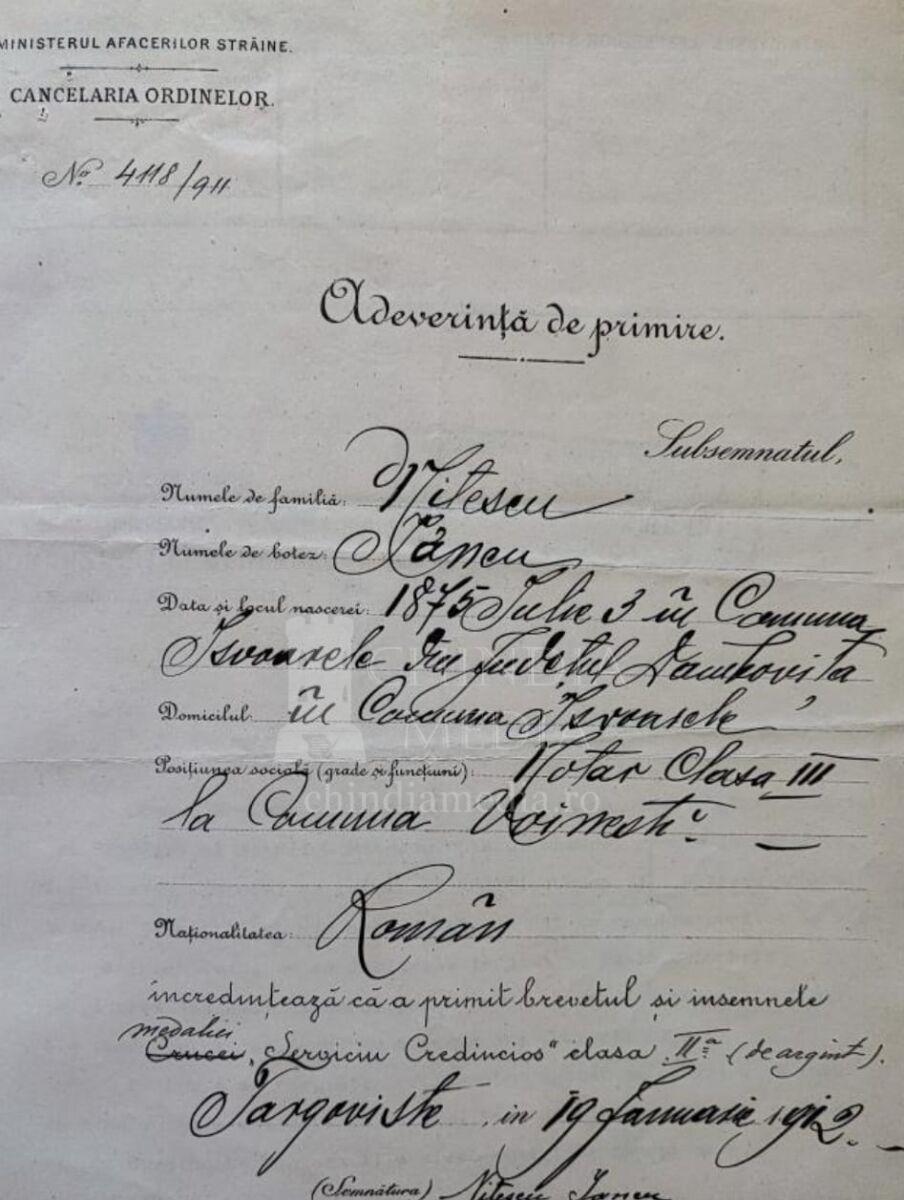 MINISTERUL AFACERILOR STRĂINE.
CANCELARIA ORDINELOR.
No. 4118/911
Adeverință de primire.
Subsemnatul,
Numele de familiă: Nitescu
Numele de botez: Iancu
Data și locul nascerei: 1875 Iulie 3 în Comuna
Isvoarele din Judetul Dambovita
Domicilul: în Comuna Isvoarele
Positiunea socială (grade și funcțiuni): Notar Clasa III
la Comuna Voinesti
Naționalitatea: Român
încredințează că a primit brevetul și insemnele
medaliei
Crucei „Serviciu Credincios" clasa II-a (de argint).
Targoviste in 19 Ianuarie 1912.
(Semnătura) Nitescu Iancu
CHINDIA
MEDIA
chindiamedia.ro